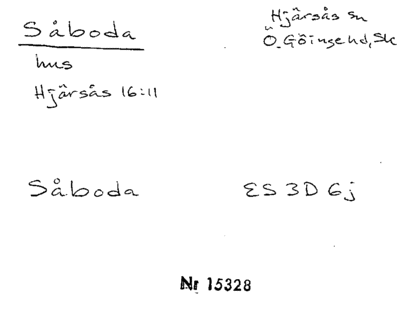 Såboda
hus
Hjärsås 16:11
Hjärsås sn
Ö. Göinge hd, Sk
Såboda
ES 3D 6j
Nr 15328